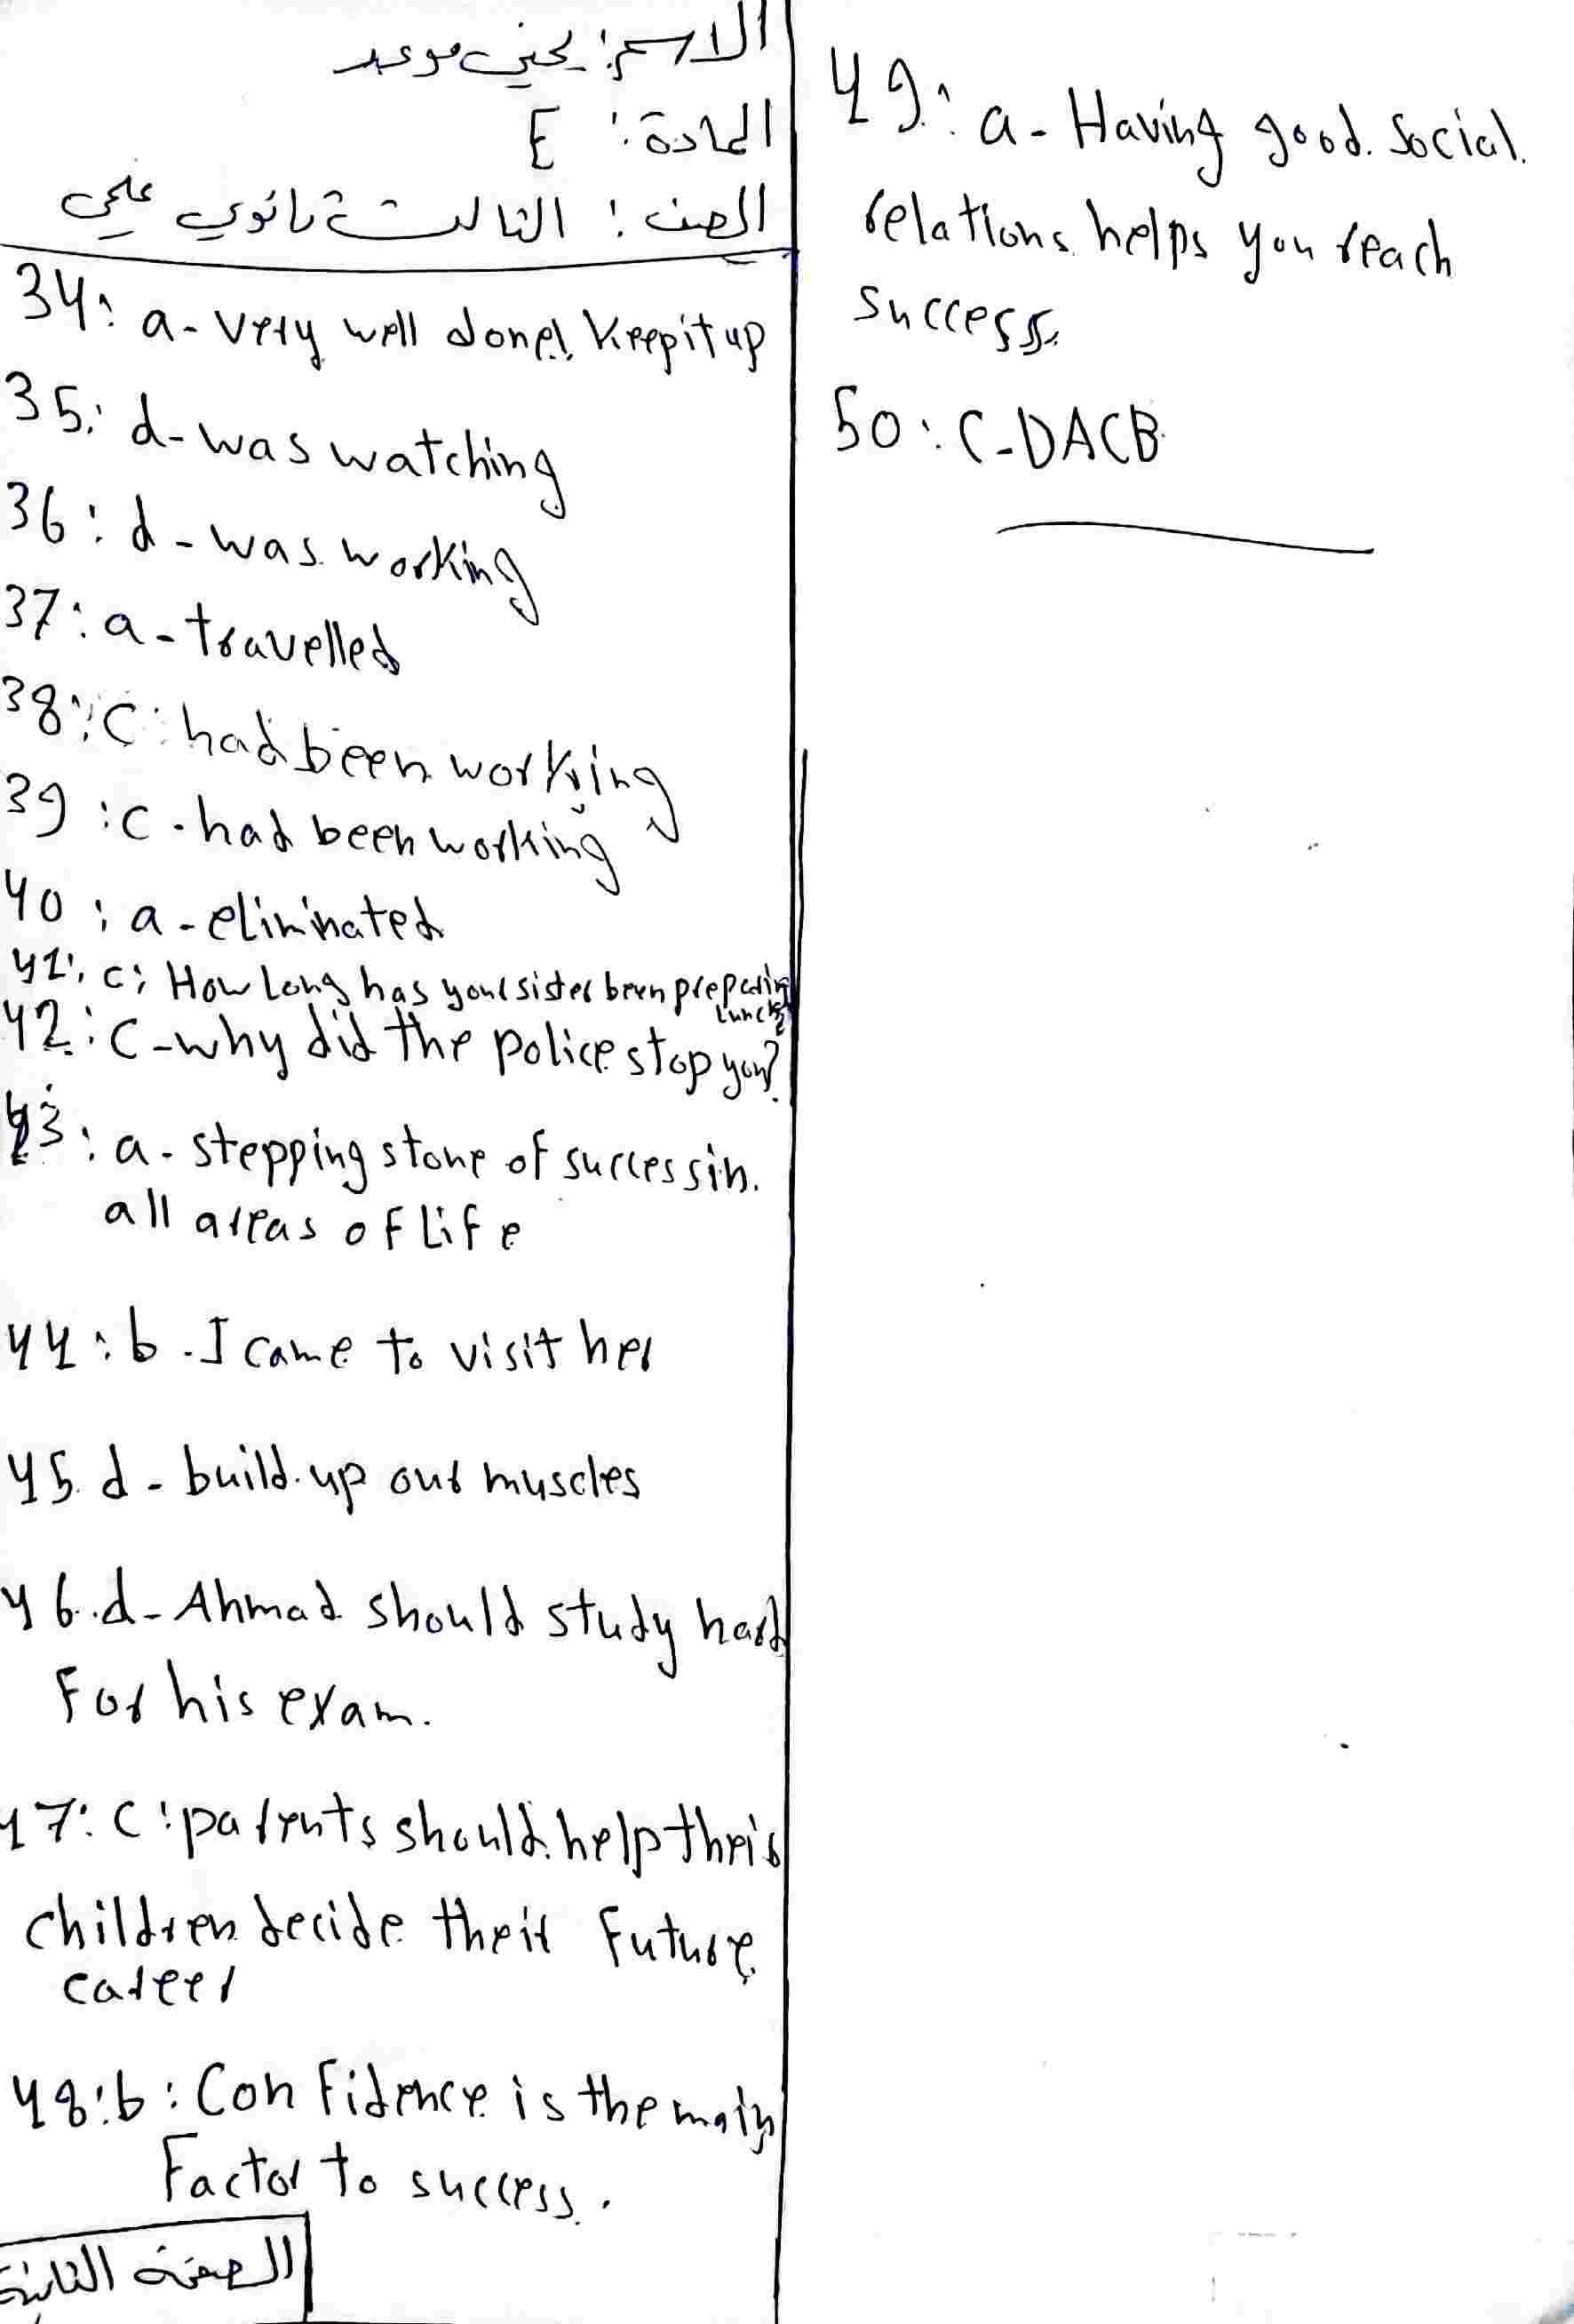 الاسم: يحيى موعد
المادة: E
الصف: الثالث ثانوي علمي
34: a- very well done!. Keep it up
35: d- was watching
36: d- was working
37: a- travelled
38: C: had been working
39: C. had been working
40: a- eliminated
41: c: How Long has your sister been preparing
Lunch?
42: C- why did the police stop you?
43: a- stepping stone of success in.
all areas of Life
44: b. I came to visit her
45. d- build up our muscles
46. d- Ahmad should study hard
For his exam.
47: C: parents should help their
children decide their Future
career
48: b: Confidence is the main
Factor to success.
الصفحة الثانية
49: a- Having good social
relations helps you reach
success.
50: C- DACB